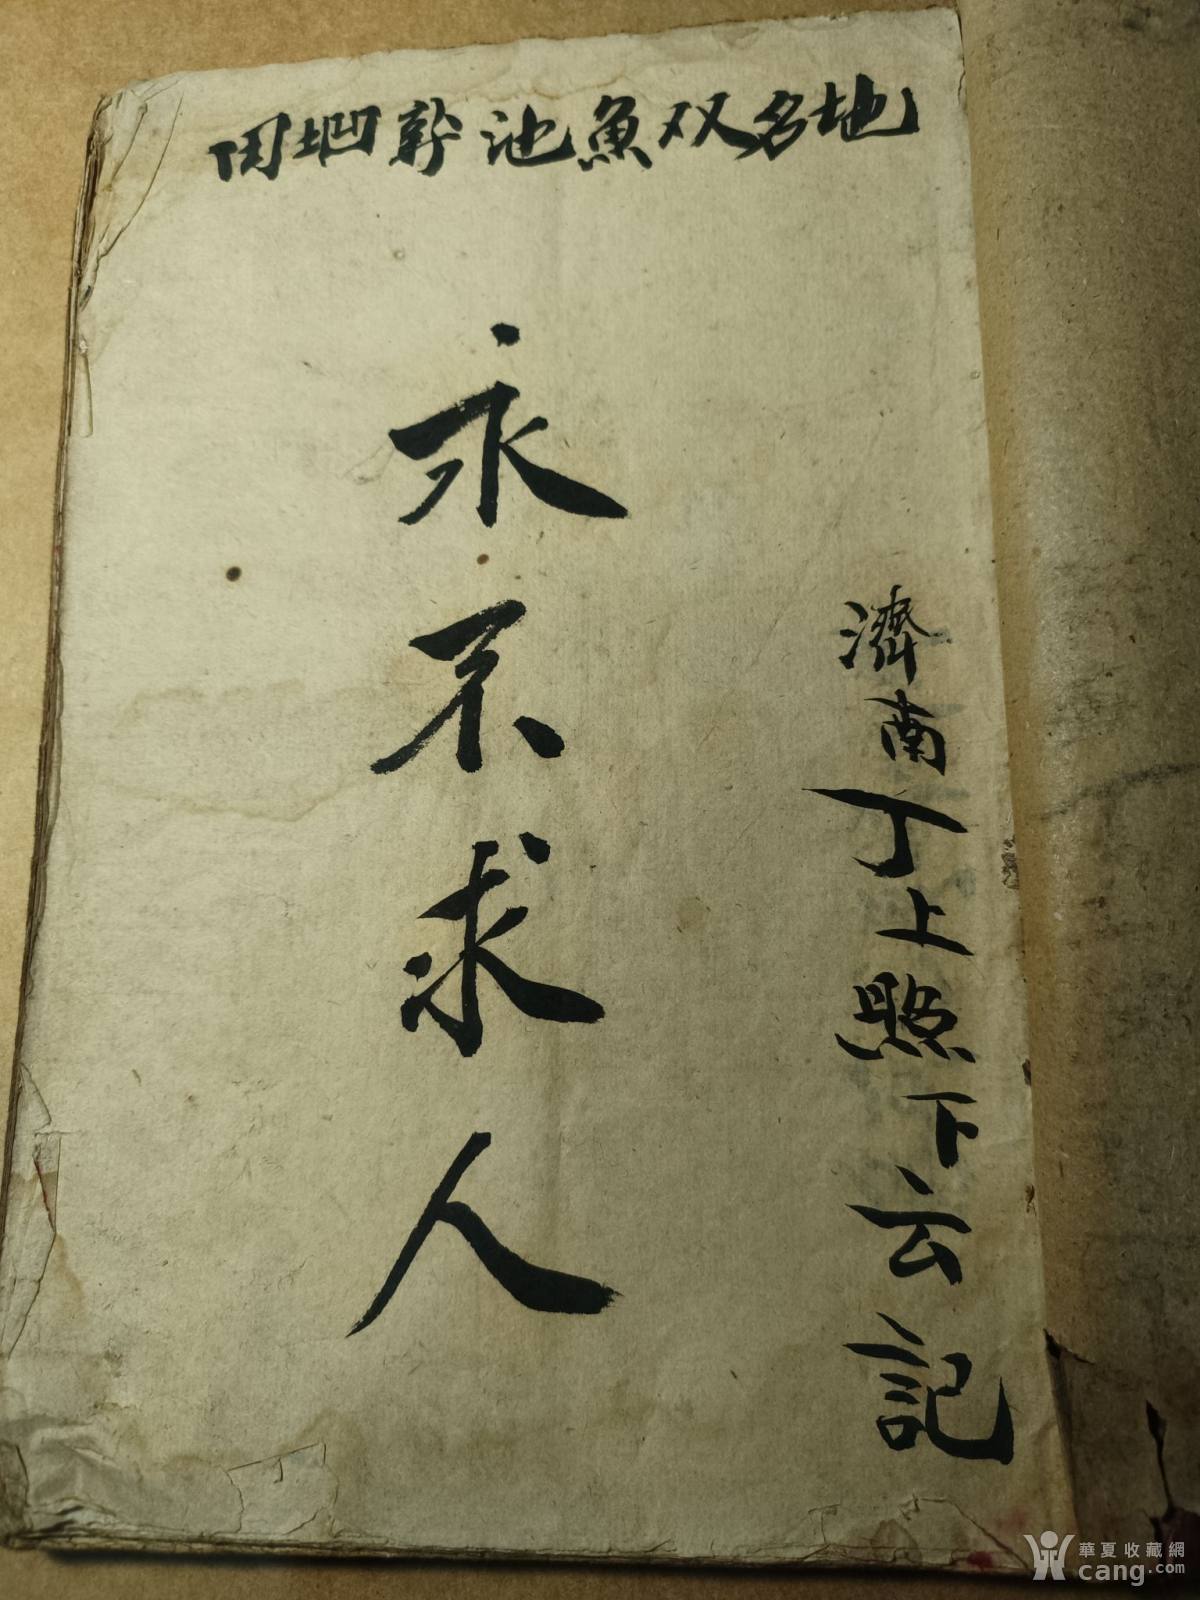 地名双魚池新坵田
永不求人
濟南丁上照下云記
華夏收藏網
cang.com